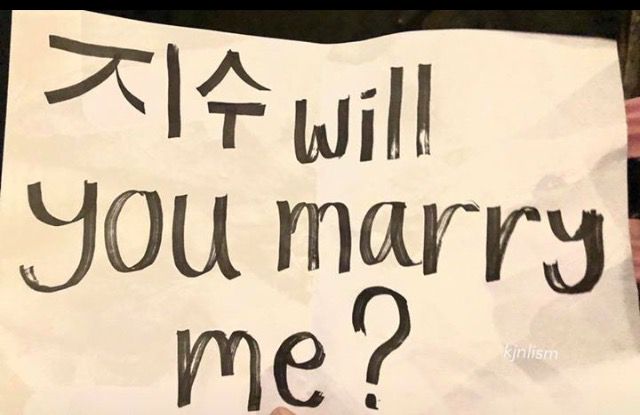 지수 will
you marry
me?
kjnlism